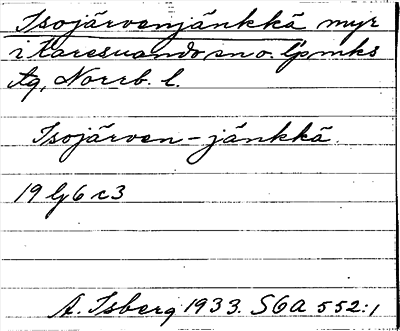 Isojärvenjänkkä myr
i Karesuando sn o. Lpmks
tg, Norrb. l.
Isojärven-jänkkä.
19 Lj 6 c 3
A. Isberg 1933. SGA 552:1